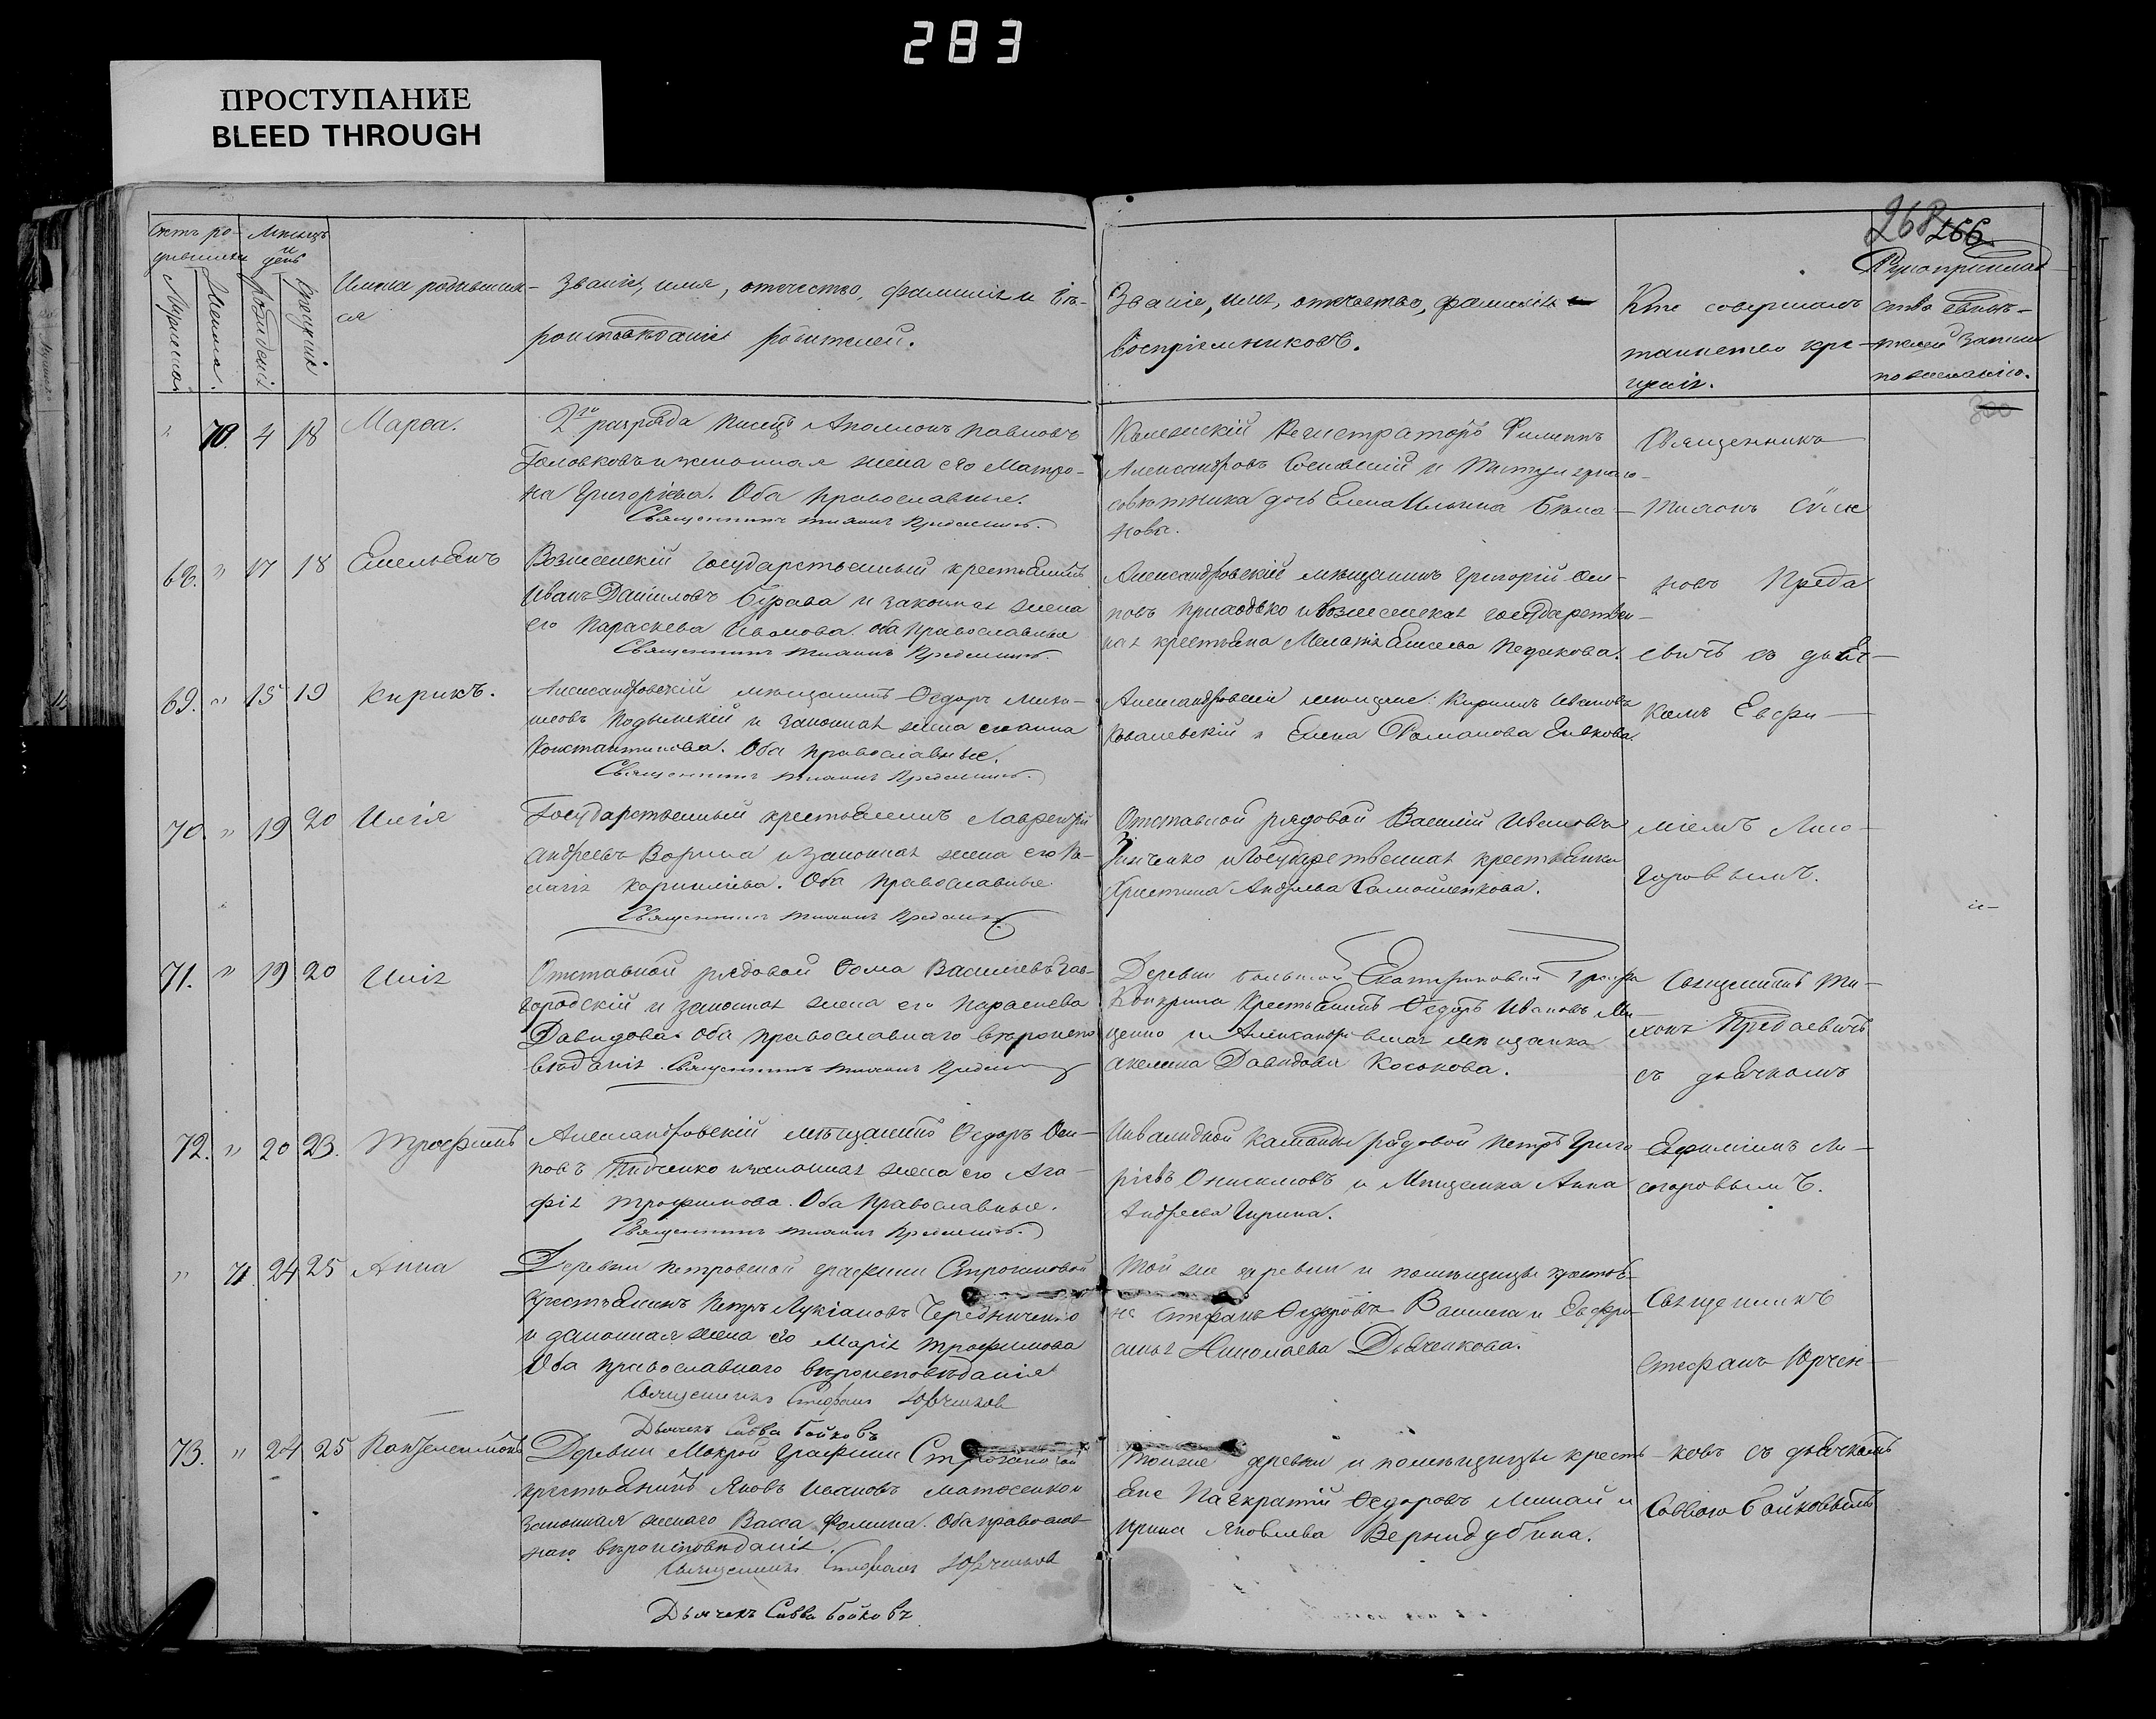 283
ПРОСТУПАНИЕ
BLEED THROUGH
268 266
Счетъ ро-
дившихся
Мѣсяцъ
и
день
Мужеска
Женска.
Рожденія
Крещенія
Имена родивших-
ся
Званіе, имя, отечество, фамилія и вѣ-
роисповѣданіе родителей.
Званіе, имя, отечество, фамилія
воспріемниковъ.
Кто совершалъ
таинство кре-
щенія.
Рукоприклад-
ство свидѣ-
телей записи
по желанію.
300
" 70. 4 18 Марѳа.
2го разряда писецъ Аполлонъ Павловъ
Головковъ и законная жена его Матро-
на Григоріева. Оба православные.
Священникъ Тихонъ
Коллежскій Регистраторъ Филиппъ
Александровъ и Титулярнаго
совѣтника дочь Елена Ильина Бѣла-
нова.
Священникъ
Тихонъ
68. " 17 18 Емельянъ
Вознесенскій государственный крестьянинъ
Иванъ Даніиловъ Бурава и законная жена
его Параскева Иванова. Оба православные
Священникъ Тихонъ
Александровскій мѣщанинъ Григорій Оси-
повъ Приходько и вознесенская государствен-
ная крестьянка Меланія Елисеева
съ дьяч-
69. " 15 19 Кирикъ.
Александровскій мѣщанинъ Ѳедоръ
Подымскій и законная жена его Анна
Константинова. Оба православные.
Священникъ Тихонъ
Александровскій мѣщане: Кирилъ Ивановъ
Ковалевскій и Елена Романова
комъ Евфи-
70. " 19 20 Илія
Государственный крестьянинъ Лаврентій
Андреевъ Ворина и законная жена его Пе-
лагія Корнилієва. Оба православные
Священникъ Тихонъ
Отставной рядовой Василій Ивановъ
Зинченко и Государственная крестьянка
Христина Андреева Самойленкова.
міемъ
71. " 19 20 Илія
Отставной рядовой Ѳома Василіевъ Зав-
городскій и законная жена его Параскева
Давидова. Оба православнаго вѣроиспо-
вѣданія. Священникъ Тихонъ
Деревни большой Екатериновки Графа
Канкрина крестьянинъ Ѳедоръ Ивановъ Ми-
щенко и Александровская мѣщанка
Акелина Давидова Коськова.
Священникъ Ти-
хонъ
съ дьячкомъ
72. " 20 23. Трофимъ
Александровскій мѣщанинъ Ѳедоръ Оси-
повъ и законная жена его Ага-
фія Трофимова. Оба православные.
Священникъ Тихонъ
Инвалидной команды рядовой Петръ Григо-
ріевъ Онисимовъ и мѣщанка Анна
Андреева Гирина.
Евфиміемъ
" 71. 24 25 Анна
Деревни Петровской графини Строгоновой
крестьянинъ Петръ Лукіановъ Чередниченко
и законная жена его Марія Трофимова
Оба православнаго вѣроисповѣданія
Священникъ Стефанъ Юрченков
Дьячекъ Савва Бойковъ
Той же деревни и помѣщицы крестья-
не Стефанъ Ѳедоровъ и Евфро-
синія Николаева Дьяченкова.
Священникъ
Стефанъ Юрчен-
73. " 24 25 Пантелеимонъ
Деревни Мокрой Графини Строгановой
крестьянинъ Яковъ Ивановъ и
законная жена его Васса Фомина. Оба православ-
наго вѣроисповѣданія.
Священникъ Стефанъ Юрченков
Дьячекъ Савва Бойковъ
Той же деревни и помѣщицы кресть-
яне Панкратій Ѳедоровъ и
Ирина Яковлева Вернидубина.
ковъ съ дьячкомъ
Саввою Бойковымъ